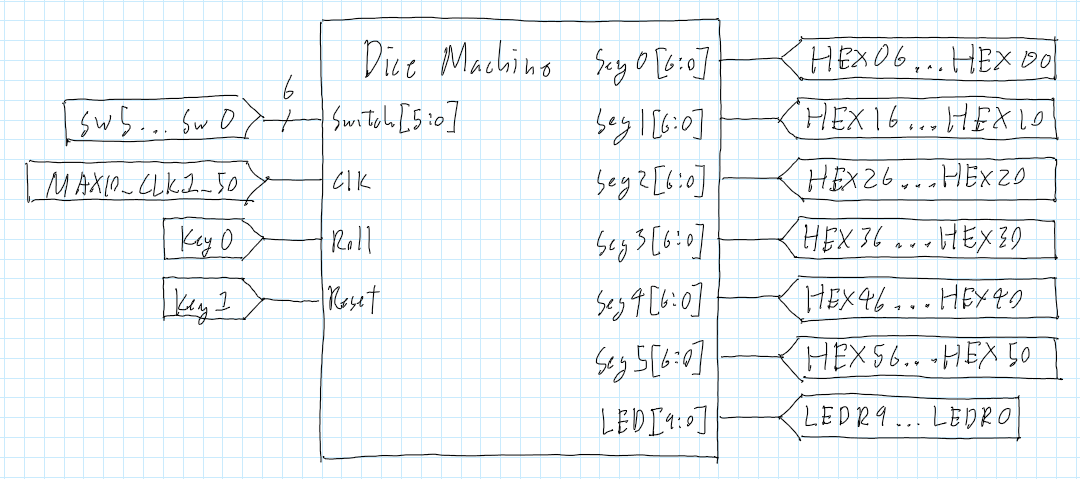 Dice Machine
6
SW5...SW0
Switch[5:0]
MAX10_CLK1_50
Clk
Key0
Roll
Key1
Reset
Seg0[6:0]
HEX06...HEX00
Seg1[6:0]
HEX16...HEX10
Seg2[6:0]
HEX26...HEX20
Seg3[6:0]
HEX36...HEX30
Seg4[6:0]
HEX46...HEX40
Seg5[6:0]
HEX56...HEX50
LED[9:0]
LEDR9...LEDR0